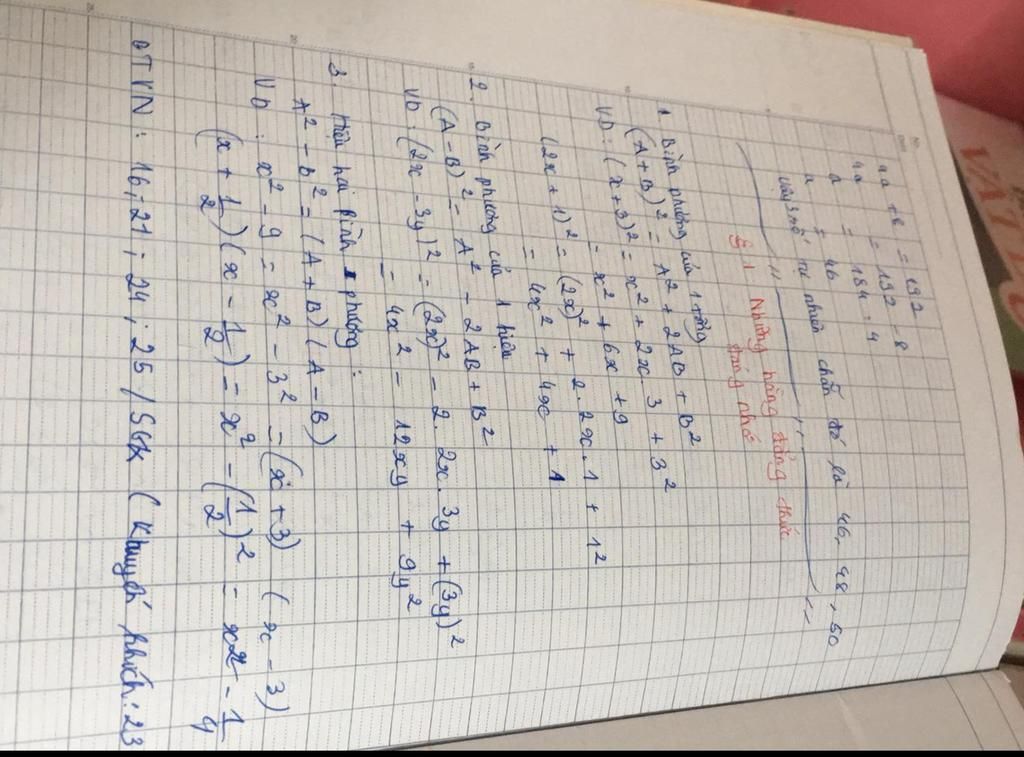 4a + 8 = 192
4a = 192 - 8
4a = 184 : 4
a = 46
a =
Vậy 3 số tự nhiên chẵn đó là 46, 48, 50
Những hằng đẳng thức
đáng nhớ
1. Bình phương của 1 tổng
(A + B)² = A² + 2AB + B²
VD: (x + 3)² = x² + 2x.3 + 3²
= x² + 6x + 9
(2x + 1)² = (2x)² + 2.2x.1 + 1²
= 4x² + 4x + 1
2. Bình phương của 1 hiệu
(A - B)² = A² - 2AB + B²
VD: (2x - 3y)² = (2x)² - 2.2x.3y + (3y)²
= 4x² - 12xy + 9y²
3. Hiệu hai Bình phương:
A² - b² = (A + B)(A - B)
VD: x² - 9 = x² - 3² = (x + 3)(x - 3)
(x + 1/2)(x - 1/2) = x² - (1/2)² = x² - 1/4
BTVN: 16; 21; 24; 25 / SGK (Khuyến khích: 23
VẬT